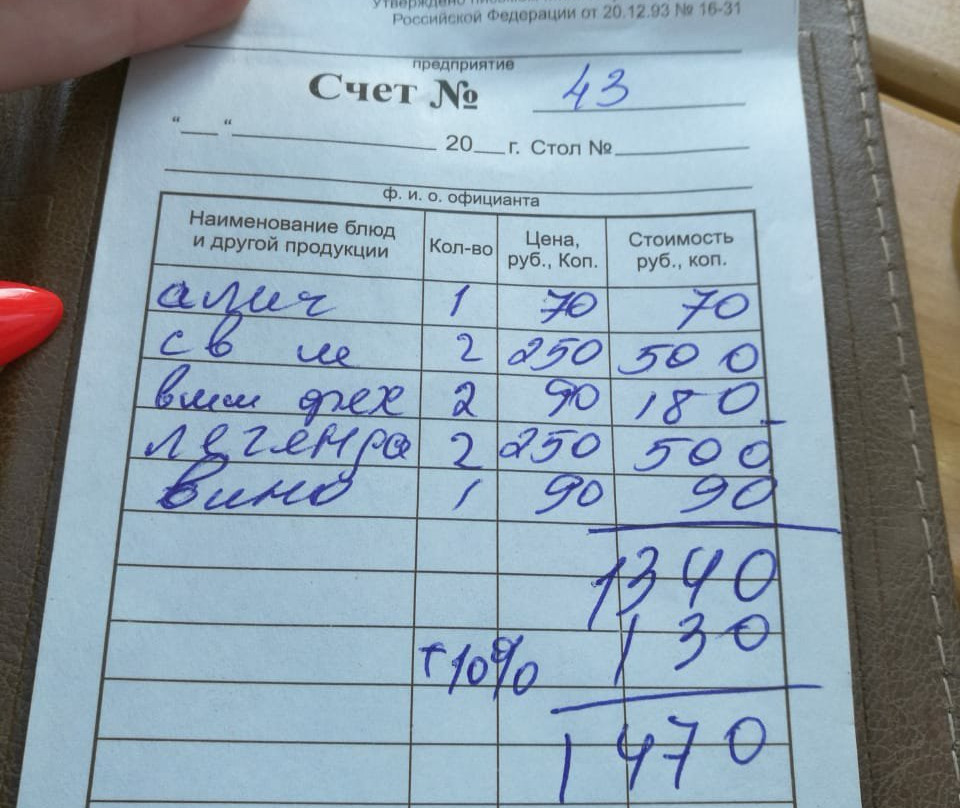 Российской Федерации от 20.12.93 № 16-31
предприятие
Счет № 43
"__" 20__г. Стол №
ф. и. о. официанта
Наименование блюд и другой продукции Кол-во Цена, руб., Коп. Стоимость руб., коп.
алич 1 70 70
св ш 2 250 500
вишн 2 90 180
легенда 2 250 500
вино 1 90 90
1340
+10% 130
1470